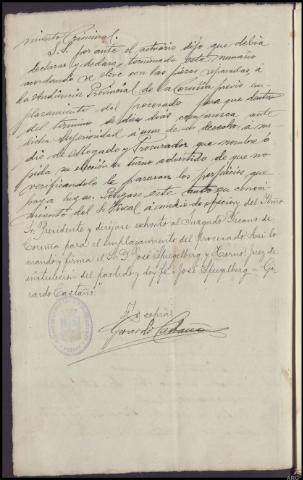 miento Criminal.
S. S. por ante el actuario dijo que debia
declarar y declara terminado este sumario
acordando se eleve con las piezas separadas á
la Audiencia Provincial de la Coruña previo em-
plazamiento del procesado para que dentro
del termino de diez dias comparezca ante
dicha Superioridad á usar de su derecho á me
dio de Abogado y Procurador que nombre ó
pida su elección de turno advertido de que no
verificandolo le pararan los perjuicios que
haya lugar. Pongase este auto en conoci
miento del S. Fiscal á medio de oficio del Iltmo
Sr. Presidente y dirijase exhorto al Juzgado Decano de
Coruña para el emplazamiento del Procesado. Asi lo
mando y firma el Sr. D. José Spiegelberg y Horno Juez de
instrucción del partido y doy fe = José Spiegelberg = Ge-
rardo Castaño"
Es copia
Gerardo Castaño